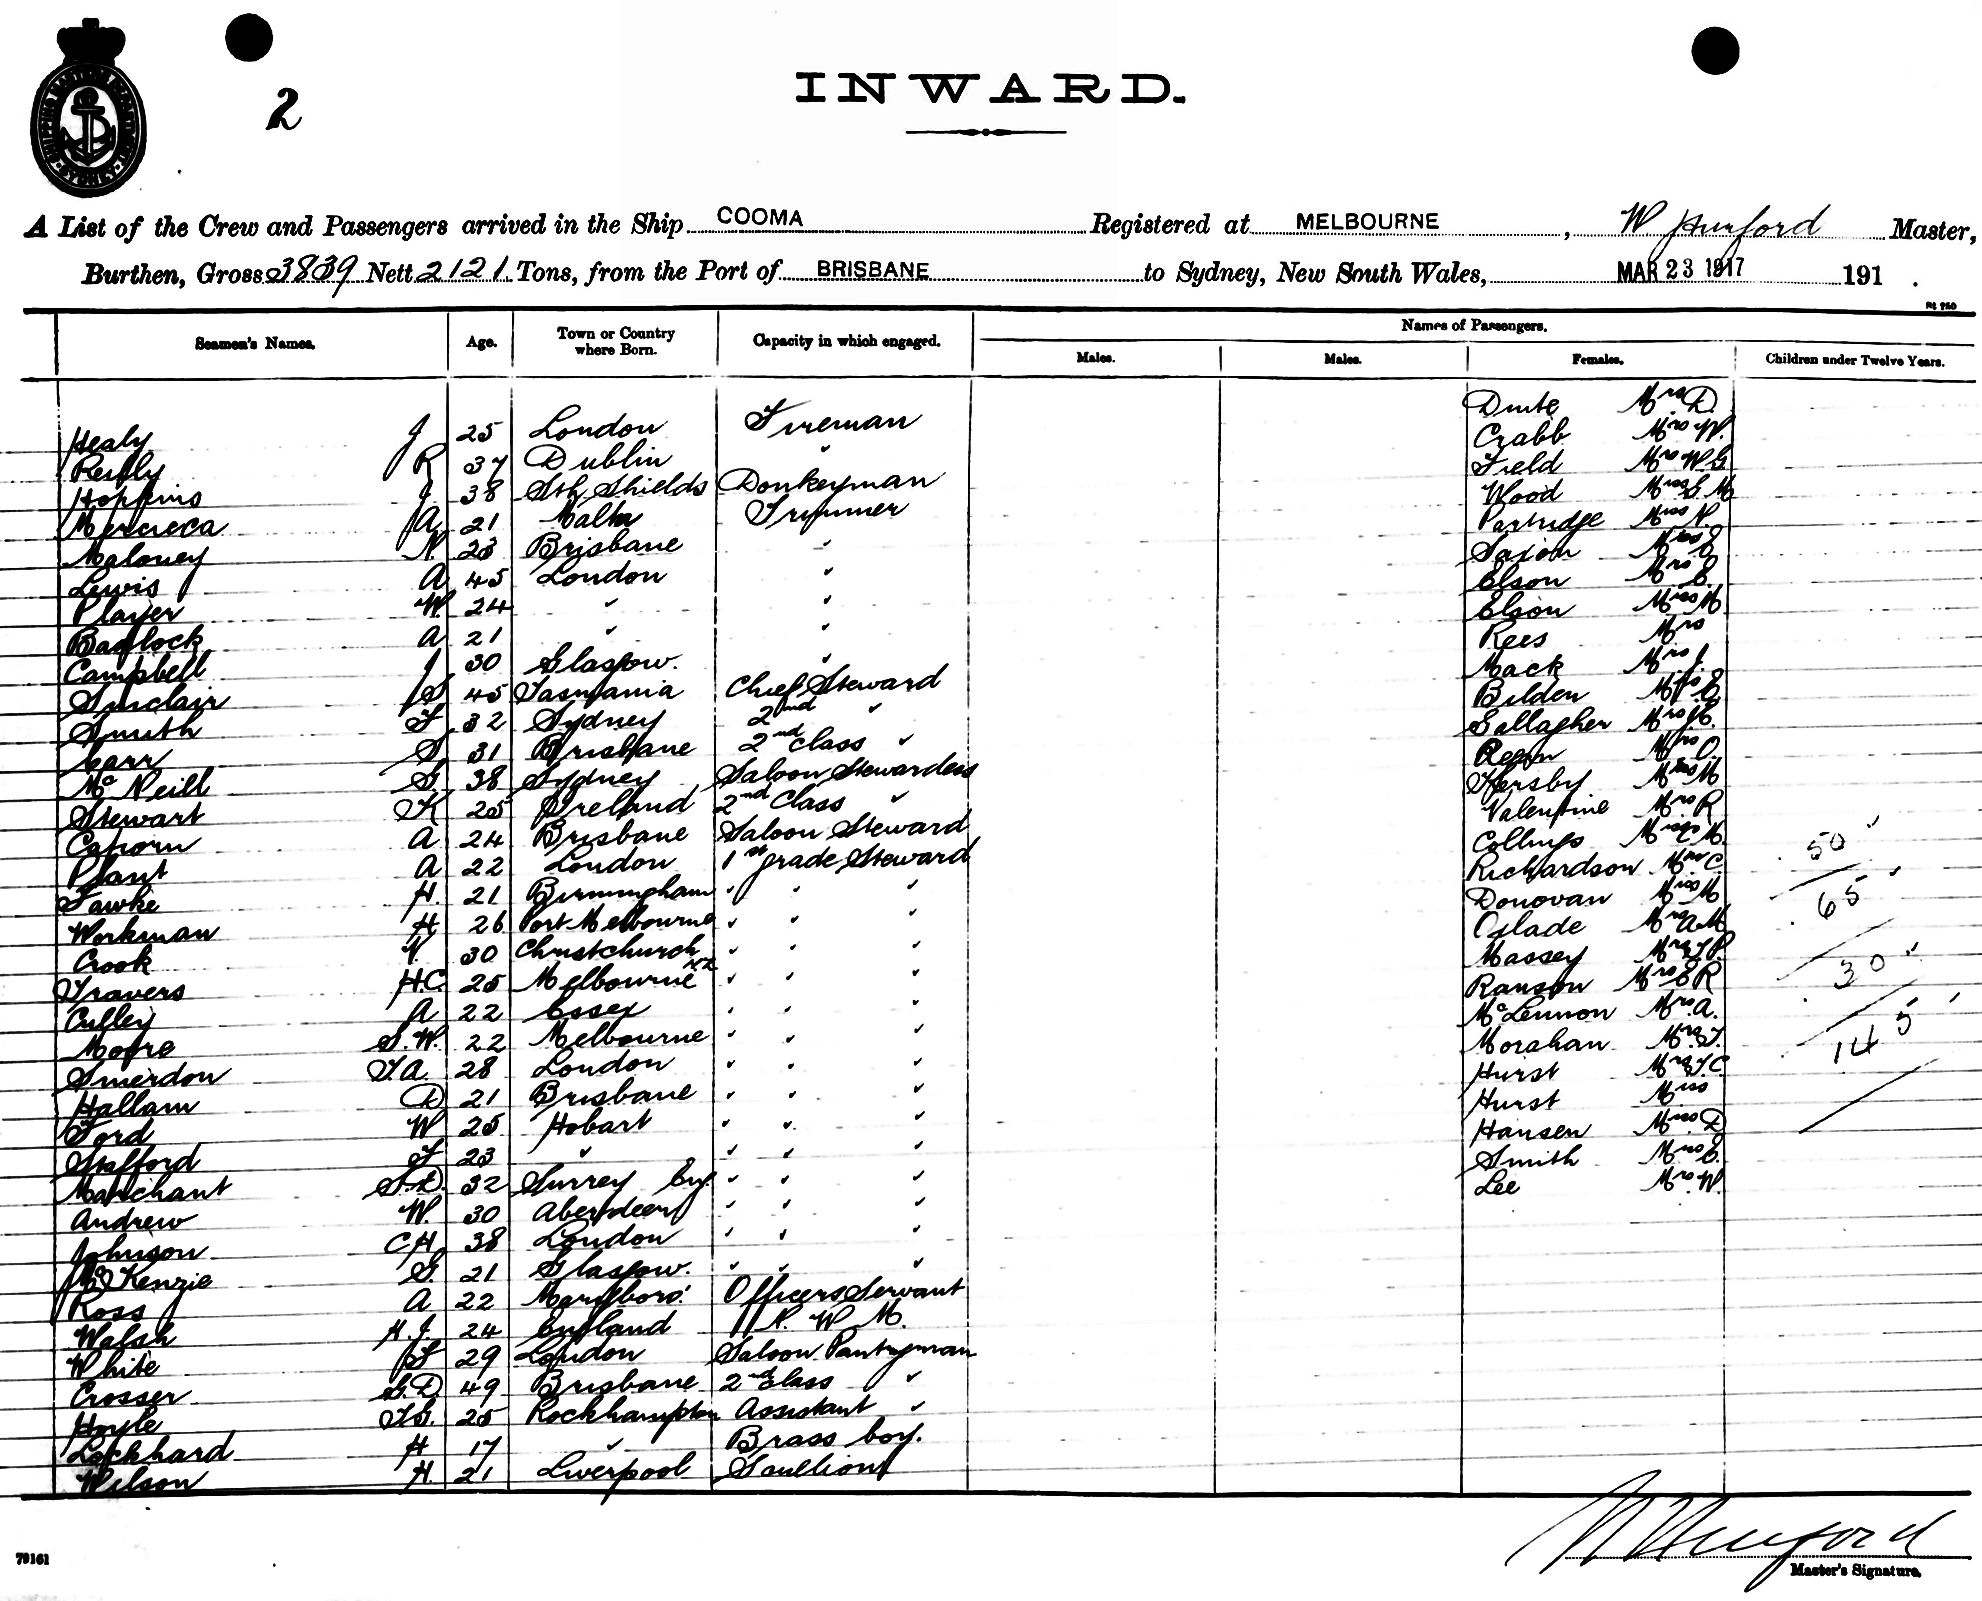 SHIPPING MASTER'S DEPARTMENT SYDNEY
2
INWARD.
A List of the Crew and Passengers arrived in the Ship COOMA Registered at MELBOURNE, W Hurford Master,
Burthen, Gross 3839 Nett 2121 Tons, from the Port of BRISBANE to Sydney, New South Wales, MAR 23 1917 191 .
Seamen's Names. Age. Town or Country where Born. Capacity in which engaged. Names of Passengers.
Males. Males. Females. Children under Twelve Years.
Dute Mrs D.
Healy J 25 London Fireman Crabb Mrs W.
Reilly R 37 Dublin " Field Mrs W G
Hopkins J 38 Sth Shields Donkeyman Wood Miss E M
Mercieca A 21 Malta Trimmer Partridge Miss N.
Maloney N. 23 Brisbane " Saxon Miss E
Lewis A 45 London " Elson Mrs E.
Player W. 24 " " Elson Miss M
Badlock A 21 " " Rees Mrs
Campbell J 30 Glasgow. " Mack Mrs J.
Sinclair S 45 Tasmania Chief Steward Bilden Mrs E
Smith F 32 Sydney 2nd " Gallagher Mrs C.
Carr S 31 Brisbane 2nd Class " Regan Mrs O.
McNeill G 38 Sydney Saloon Stewardess Hersby Miss M
Stewart K 25 Ireland 2nd Class " Valentine Mrs R
Caporn A 24 Brisbane Saloon Steward Collings M. 50
Plant A 22 London 1st grade Steward Richardson Mrs C.
Fawke H. 21 Birmingham " " " Donovan Miss M 65
Workman H 26 Port Melbourne " " " Oslade Mrs A.M
Crook V. 30 Christchurch NZ " " " Massey Mrs T.P. 30
Travers H.C. 25 Melbourne " " " Ranson Mrs E R
Culley A 22 Essex " " " McLennon Mrs A. 5
Moore S.W. 22 Melbourne " " " Morahan Mrs T. 14
Smerdon T.A. 28 London " " " Hurst Mrs T.C.
Hallam D 21 Brisbane " " " Hurst Miss
Ford W 25 Hobart " " " Hansen Miss D
Stafford F 23 " " " " Smith Mrs E.
Marchant S.D. 32 Surrey Eng. " " " Lee Mrs W.
Andrew W. 30 Aberdeen " " "
Johnson C H. 38 London " " "
McKenzie G. 21 Glasgow. " " "
Ross A 22 Marlboro' Officers Servant
Walsh H.J. 24 England N. W. M.
White F 29 London Saloon Pantryman
Crosser G.D. 49 Brisbane 2nd Class "
Hoyle T.G. 25 Rockhampton Assistant "
Lockhard H 17 " Brass boy.
Wilson H. 21 Liverpool Scullion
W Hurford
Master's Signature.
79161